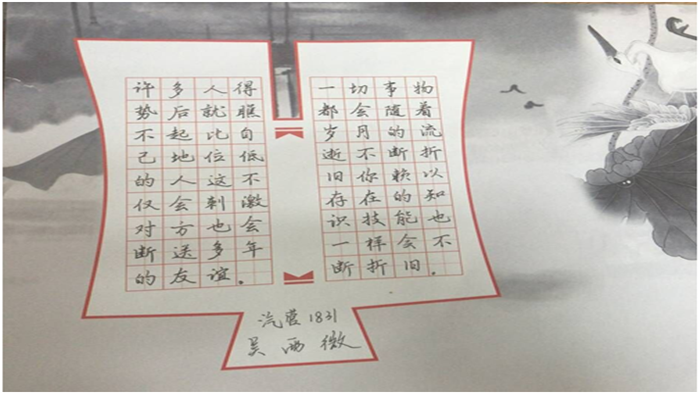 许多人得
势后就瞧
不起比自
己地位低
的人这不
仅会刺激
对方也会
断送多年
的友谊。
一切事物
都会随着
岁月的流
逝不断折
旧你赖以
存在的知
识技能也
一样会不
断折旧。
汽营1831
吴西微